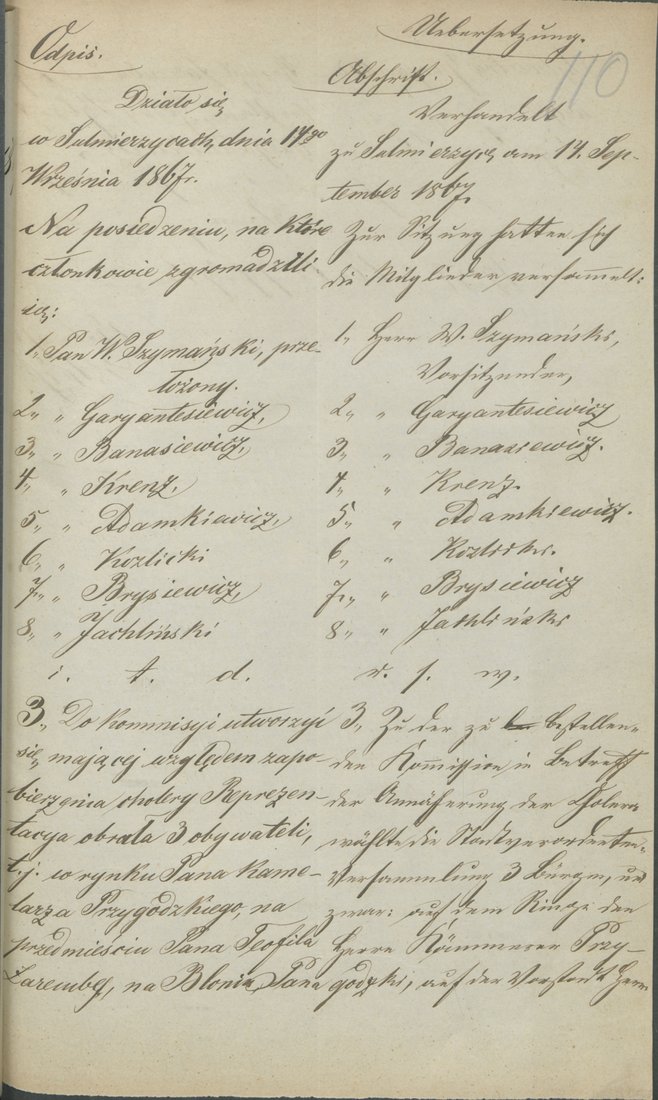 Odpis.
Działo się
w Sulmierzycach, dnia 14go
Września 1867r.
Na posiedzeniu, na które
członkowie zgromadzili
się:
1, Pan W. Szymański, prze-
łożony.
2, " Garyantesiewicz,
3, " Banasiewicz,
4, " Krenz,
5, " Adamkiewicz,
6, " Kozlicki
7, " Brysiewicz,
8, " Jachliński
i. t. d.
3, Do kommisyi utworzyć
się mającej względem zapo-
bierzenia cholery Reprezen-
tacya obrała 3 obywateli,
t.j: w rynku Pana Kame-
larza Przygodzkiego, na
przedmieściu Pana Teofila
Zaremby, na Bloniu Pana
Uebersetzung.
110
Abschrift.
Verhandelt
zu Sulmierzyce am 14. Sep-
tember 1867.
Zur Sitzung hatten sich
die Mitglieder versammelt:
1, Herr W. Szymański,
Vorsitzender,
2, " Garyantesiewicz
3, " Banasiewicz.
4, " Krenz.
5, " Adamkiewicz.
6, " Kozlicki.
7, " Brysiewicz
8, " Jachliński
u. s. w.
3, Zu der zu bestellen-
den Kommission in Betreff
der Annäherung der Cholera
wählte die Stadtverordneten-
Versammlung 3 Bürger, und
zwar: auf dem Ringe den
Herrn Kämmerer Przy-
godzki, auf der Vorstadt Herrn